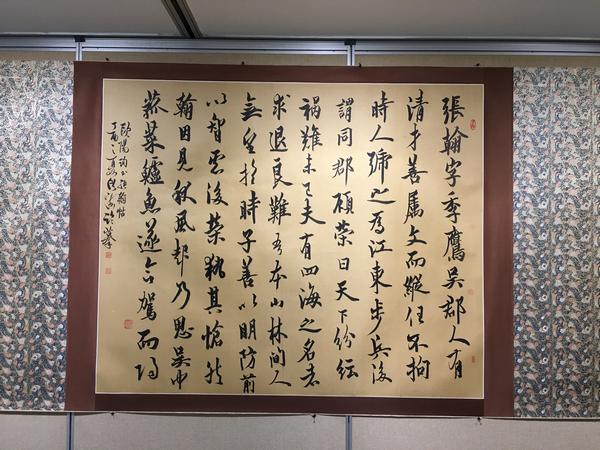 張翰字季鷹吳郡人有
清才善屬文而縱任不拘
時人號之為江東步兵後
謂同郡顧榮曰天下紛紜
禍難未已夫有四海之名者
求退良難吾本山林間人
無望於時子善以明防前
以智慮後榮執其愴然
翰因見秋風起乃思吳中
菰菜鱸魚遂命駕而歸
歐陽詢張翰帖
丁酉之夏